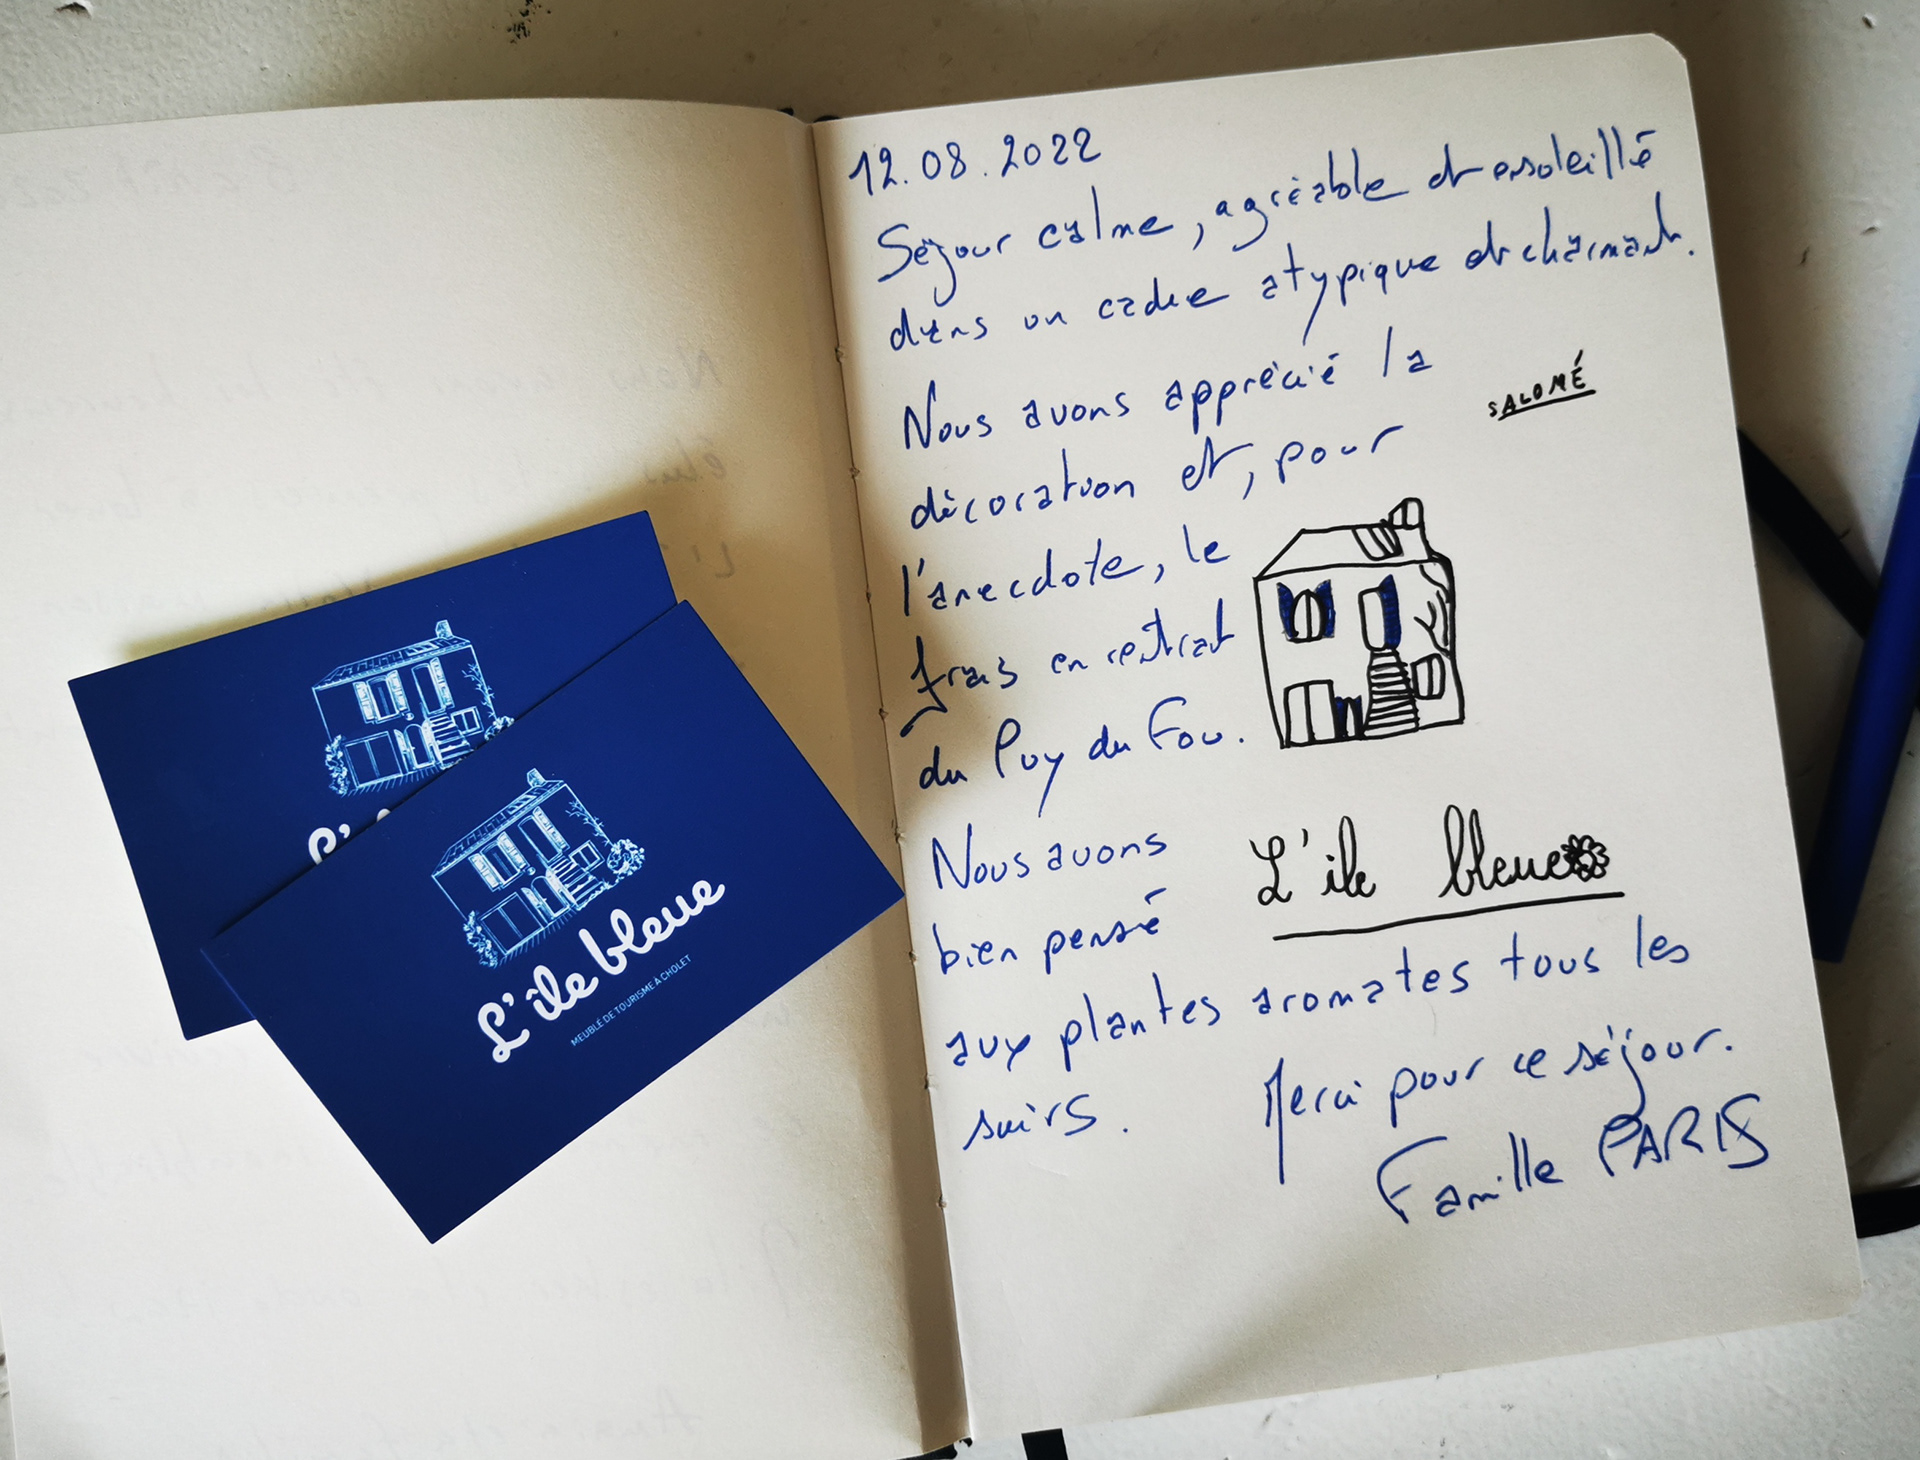 L'
L'île bleue
MEUBLÉ DE TOURISME À CHOLET
12.08.2022
Séjour calme, agréable et ensoleillé
dans un cadre atypique et charmant.
Nous avons apprécié la
SALOMÉ
décoration et, pour
l'anecdote, le
frais en rentrant
du Puy du Fou.
Nous avons
L'île bleue
bien pensé
aux plantes aromates tous les
soirs.
Merci pour ce séjour.
Famille PARIS